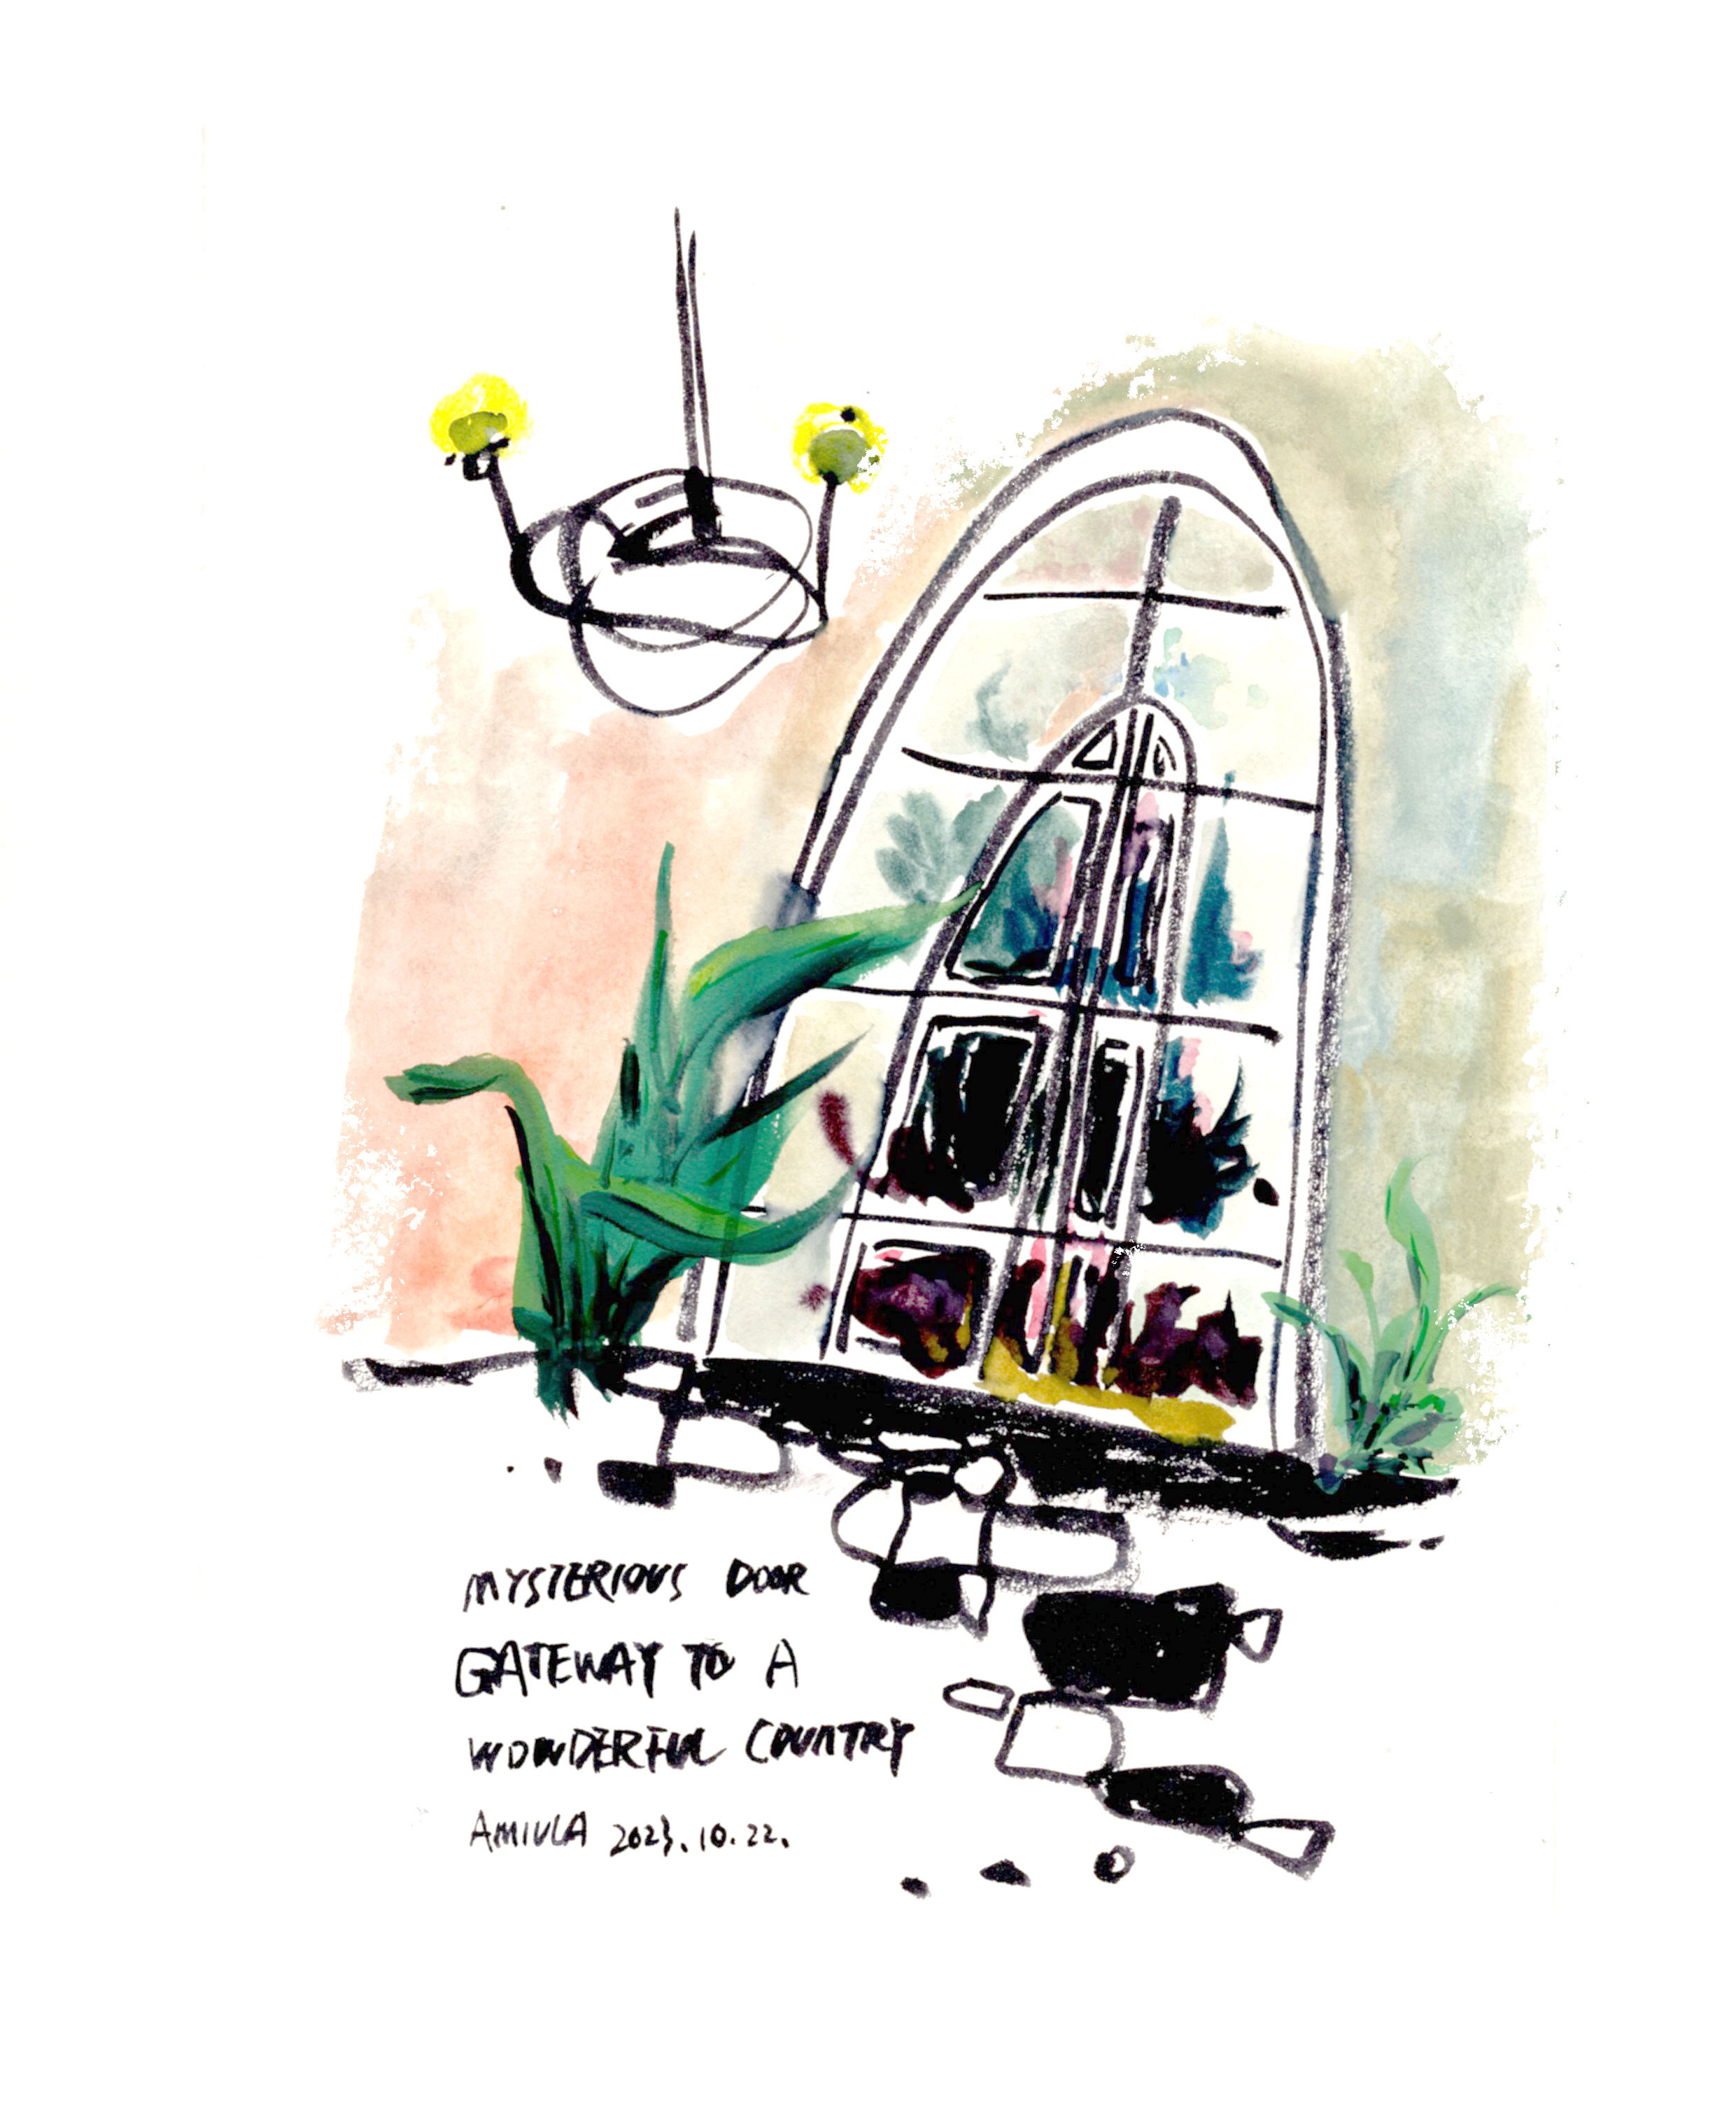 MYSTERIOUS DOOR
GATEWAY TO A
WONDERFUL COUNTRY
AMIULA 2023.10.22.